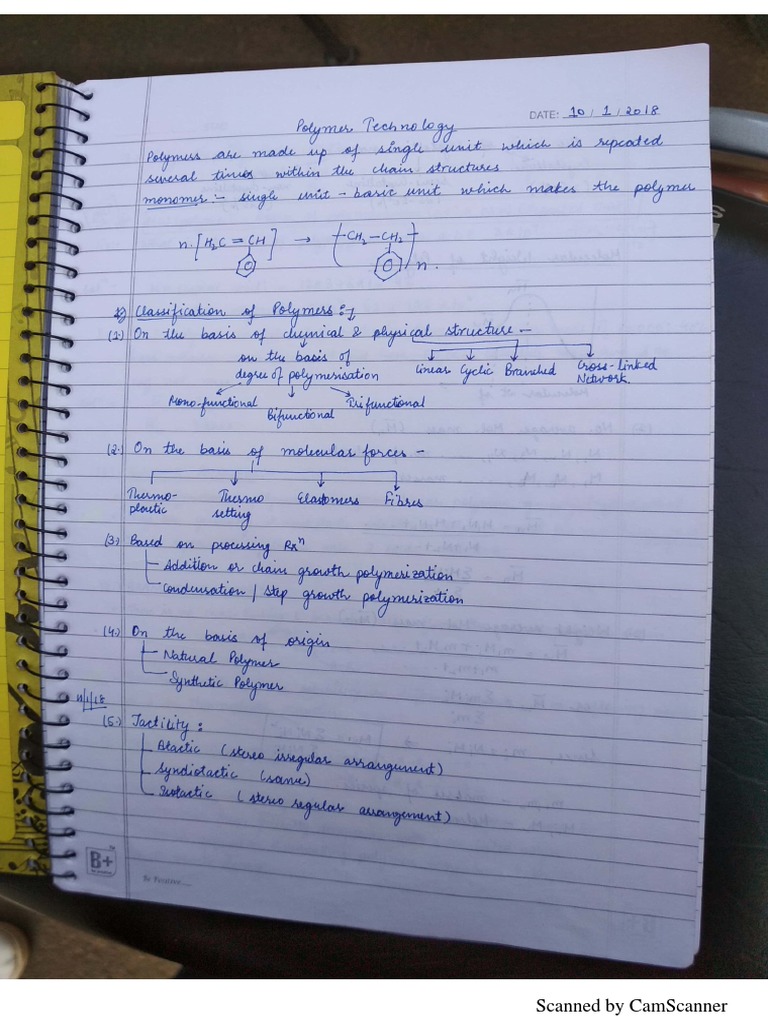 DATE: 10 / 1 / 2018
Polymer Technology
Polymers are made up of single unit which is repeated
several times within the chain structures
monomer:- single unit - basic unit which makes the polymer
n.[H₂C=CH] → (-CH₂-CH₂-)n.
(1.) Classification of Polymers:-
(1.) On the basis of chemical & physical structure -
on the basis of
degree of polymerisation
Linear Cyclic Branched Cross-linked
Network.
Mono-functional Bifunctional Trifunctional
(2.) On the basis of molecular forces -
Thermo-
plastic
Thermo
setting
Elastomers Fibres
(3.) Based on processing Rxⁿ
Addition or chain growth polymerization
Condensation / Step growth polymerization
(4.) On the basis of origin
Natural Polymer
Synthetic Polymer
11/1/18
(5.) Tactility:
Atactic (stereo irregular arrangement)
Syndiotactic (same)
Isotactic (stereo regular arrangement)
B+
Be Positive....
Scanned by CamScanner